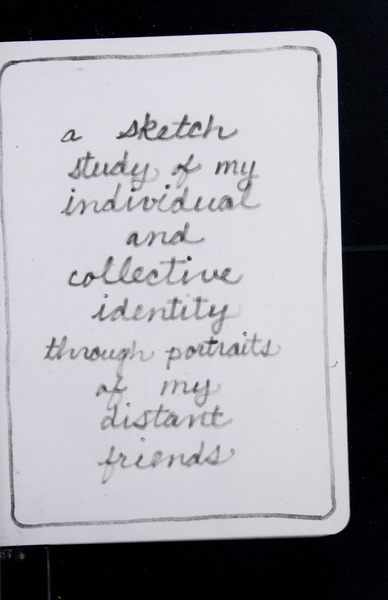 a sketch
study of my
individual
and
collective
identity
through portraits
of my
distant
friends